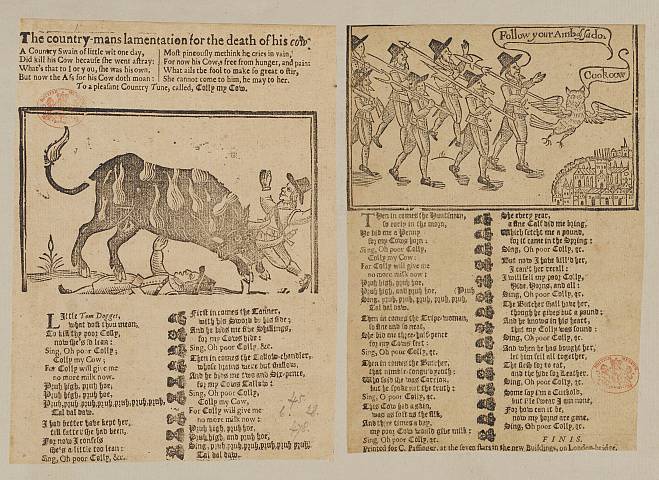 The country-mans lamentation for the death of his cow.
A Country Swain of little wit one day,
Did kill his Cow because she went astray:
What's that to I or you, she was his own,
But now the Ass for his Cow doth moan:
Most piteously methink he cries in vain,
For now his Cow,s free from hunger, and pain:
What ails the fool to make so great a stir,
She cannot come to him, he may to her.
To a pleasant Country Tune, called, Colly my Cow.
Little Tom Dogget,
what dost thou mean,
To kill thy poor Colly,
now she's so lean:
Sing, Oh poor Colly,
Colly my Cow;
For Colly will give me
no more milk now.
Pruh high, pruh hoe,
Pruh high, pruh hoe,
Pruh, pruh, pruh, pruh, pruh, pruh, pruh,
Tal dal daw.
I had better have kept her,
till fatter she had been,
For now I confess
she's a little too lean:
Sing, Oh poor Colly, &c.
First in comes the Tanner,
with his Sword by his side;
And he bids me five Shillings,
for my Cows hide:
Sing, Oh poor Colly, &c.
Then in comes the Tallow-chandler,
whose brains were but shallow,
And he bids me two and Six-pence,
for my Cows Tallow:
Sing, Oh poor Colly,
Colly my Cow,
For Colly will give me
no more milk now:
Pruh high, pruh hoe,
Pruh high, and pruh hoe,
Sing, pruh, pruh, pruh, pruh, pruh, pruh,
Tal dal daw.
Follow your Ambassado.
Cookoow
Then in comes the Huntsman,
so early in the morn,
He bid me a Penny
for my Cows horn:
Sing, O poor Colly,
Colly my Cow:
For Colly will give me
no more milk now:
Pruh high, pruh hoe,
Pruh high, and pruh hoe, (Pruh
Sing, pruh, pruh, pruh, pruh, pruh,
Tal dal daw.
Then in comes the Tripe-woman,
so fine and so neat,
She bid me three-half-pence
for my Cows feet:
Sing, Oh poor Colly, &c.
Then in comes the Butcher,
that nimble-tongu'd youth:
Who said she was Carrion,
but he spoke not the truth:
Sing, O poor Colly, &c.
This Cow had a skin,
was as soft as the silk,
And three times a day,
my poor Cow would give milk:
Sing, Oh poor Colly, &c.
She every year,
a fine Calf did me bring,
Which fetcht me a pound,
for it came in the Spring:
Sing, Oh poor Colly, &c.
But now I have kill'd her,
I can't her recall:
I will sell my poor Colly,
Hide, Horns, and all:
Sing, Oh poor Colly, &c.
The Butcher shall have her,
though he gives but a pound:
And he knows in his heart,
that my Colly was sound:
Sing, Oh poor Colly, &c.
And when he has bought her,
let him sell all together,
The flesh for to eat,
and the hide for Leather:
Sing, Oh poor Colly, &c.
Some say I'm a Cuckold,
but I'le swear I am none,
For how can it be,
now my horns are gone,
Sing, Oh poor Colly, &c.
FINIS.
Printed for C. Passinger, at the seven stars in the new Buildings, on London-bridge.